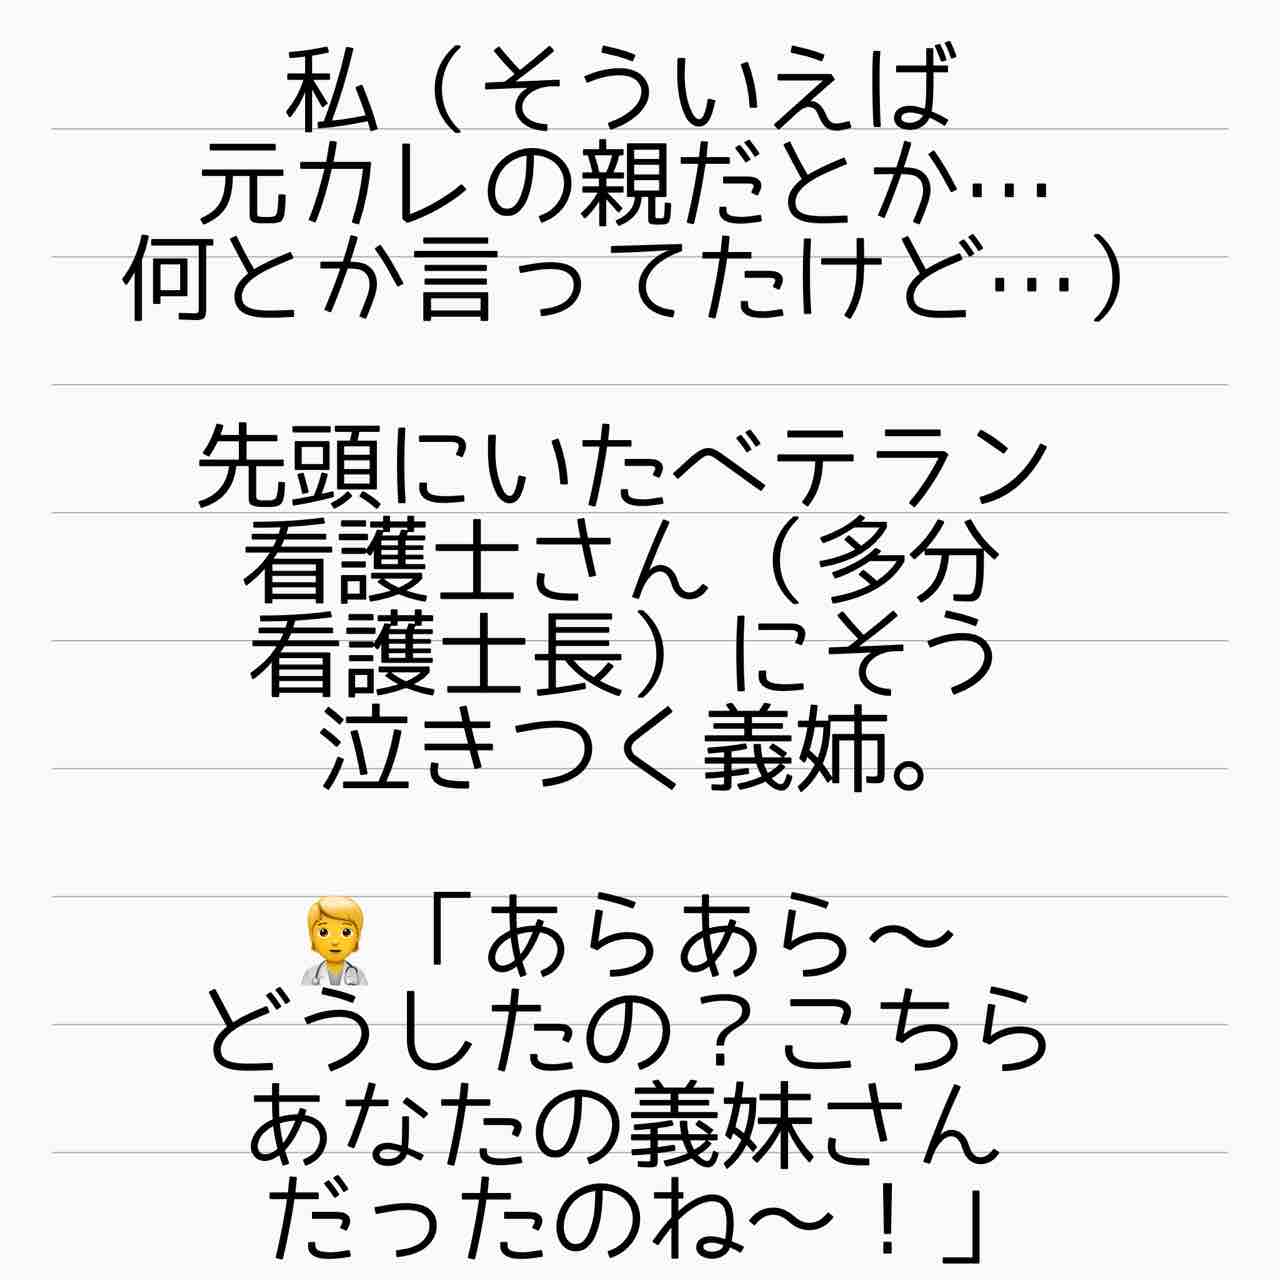 私（そういえば
元カレの親だとか…
何とか言ってたけど…）
先頭にいたベテラン
看護士さん（多分
看護士長）にそう
泣きつく義姉。
「あらあら〜
どうしたの？こちら
あなたの義妹さん
だったのね〜！」